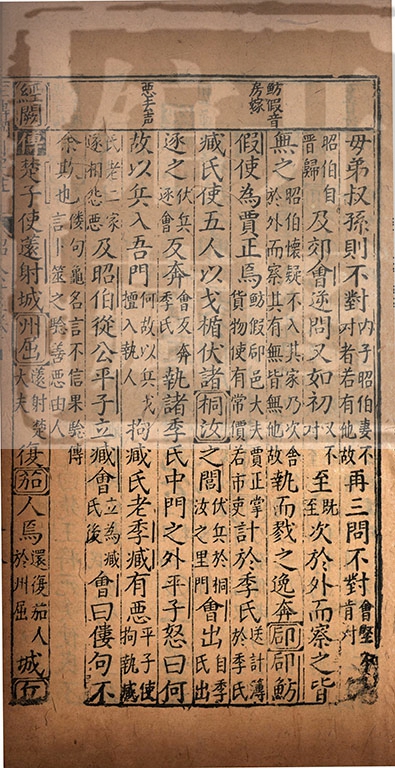 魴假音
房嫁
惡去声
毋弟叔孫則不對內子昭伯妻不對者若有他故再三問不對會堅不肯對
昭伯自晉歸及郊會逆問又如初又不對至既至次於外而察之皆
無之昭伯懷疑不入其家乃次舍於外而察其有無皆無他故執而戮之逸奔郈郈魴
假使為賈正焉魴假郈邑大夫賈正掌貨物使有常價若市吏計於季氏送計簿於季氏
臧氏使五人以戈楯伏諸桐汝之閭伏兵於桐汝之里門會出自季氏出
逐之伏兵逐會反奔會反奔季氏執諸季氏中門之外平子怒曰何
故以兵入吾門何故以兵戈擅入執人拘臧氏老季臧有惡平子使拘執臧
氏老二家遂相怨惡及昭伯從公平子立臧會立為臧氏後會曰僂句不
余欺也僂句龜名言不信果驗傳言卜筮之驗善惡由人
經闕傳楚子使薳射城州屈薳射楚大夫復茄人焉還復茄人於州屈城丘